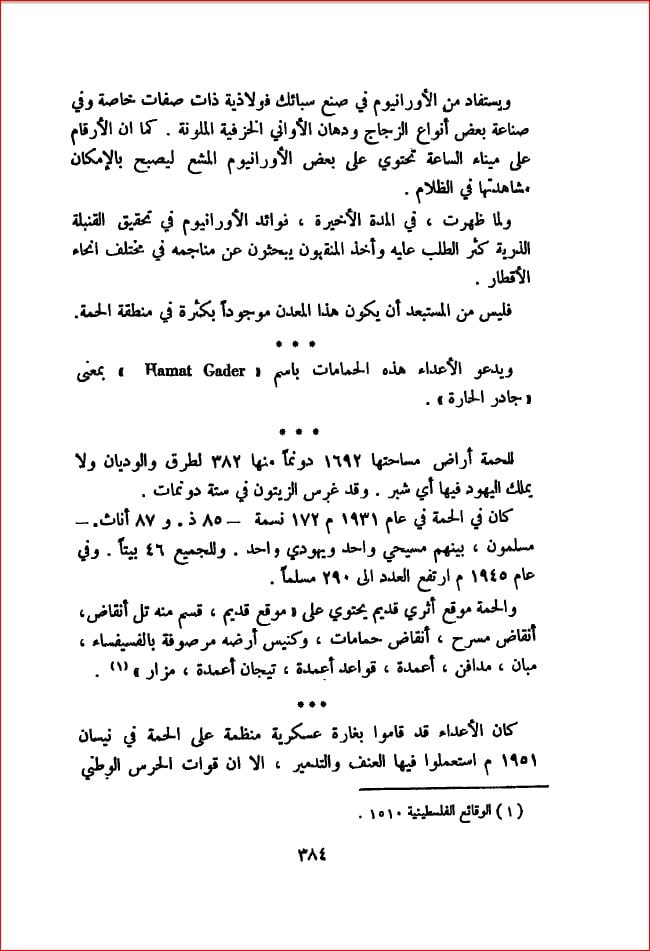 ويستفاد من الأورانيوم في صنع سبائك فولاذية ذات صفات خاصة وفي
صناعة بعض أنواع الزجاج ودهان الأواني الخزفية الملونة . كما ان الأرقام
على ميناء الساعة تحتوي على بعض الأورانيوم المشع ليصبح بالإمكان
مشاهدتها في الظلام .
ولما ظهرت ، في المدة الأخيرة ، فوائد الأورانيوم في تحقيق القنبلة
الذرية كثر الطلب عليه وأخذ المنقبون يبحثون عن مناجمه في مختلف انحاء
الأقطار .
فليس من المستبعد أن يكون هذا المعدن موجوداً بكثرة في منطقة الحمة.
* * *
ويدعو الأعداء هذه الحمامات باسم « Hamat Gader » بمعنى
«جادر الحارة» .
* * *
للحمة أراض مساحتها ١٦٩٢ دونماً منها ٣٨٢ لطرق والوديان ولا
يملك اليهود فيها أي شبر . وقد غرس الزيتون في ستة دونمات .
كان في الحمة في عام ١٩٣١ م ١٧٢ نسمة – ٨٥ ذ. و ٨٧ أناث. –
مسلمون ، بينهم مسيحي واحد ويهودي واحد . وللجميع ٤٦ بيتاً . وفي
عام ١٩٤٥ م ارتفع العدد الى ٢٩٠ مسلماً .
والحمة موقع أثري قديم يحتوي على « موقع قديم ، قسم منه تل أنقاض،
أنقاض مسرح ، أنقاض حمامات ، وكنيس أرضه مرصوفة بالفسيفساء ،
مبان ، مدافن ، أعمدة ، قواعد أعمدة ، تيجان أعمدة ، مزار » (١) .
***
كان الأعداء قد قاموا بغارة عسكرية منظمة على الحمة في نيسان
١٩٥١ م استعملوا فيها العنف والتدمير ، الا ان قوات الحرس الوطني
(١) الوقائع الفلسطينية ١٥١٠ .
٣٨٤